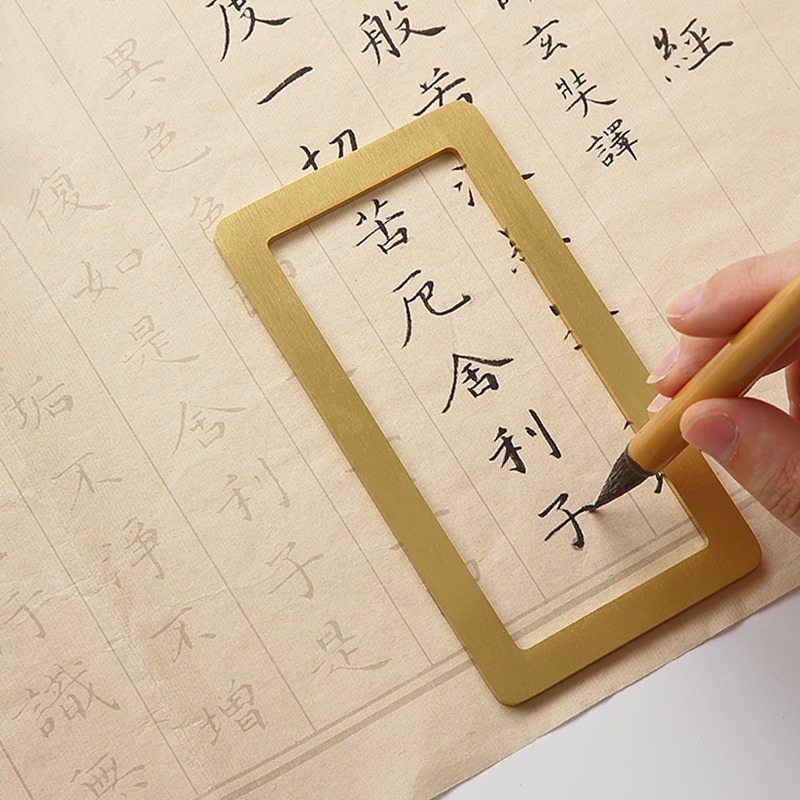 經
玄奘譯
般若
度一切苦厄舍利子
異色色
復如是舍利子是
垢不淨不增
行識無